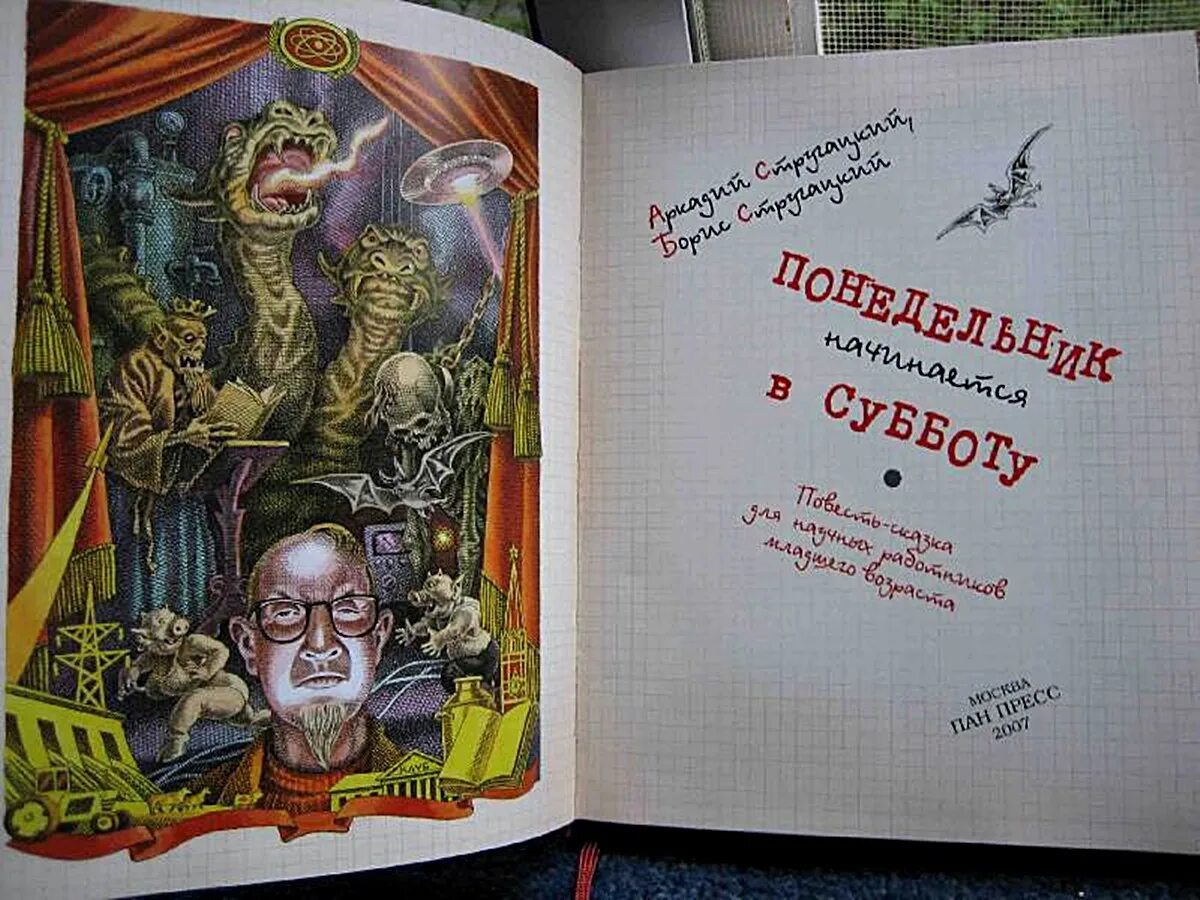 Аркадий Стругацкий,
Борис Стругацкий
ПОНЕДЕЛЬНИК
начинается
в СУББОТУ
Повесть-сказка
для научных работников
младшего возраста
МОСКВА
ПАН ПРЕСС
2007
КЛУБ